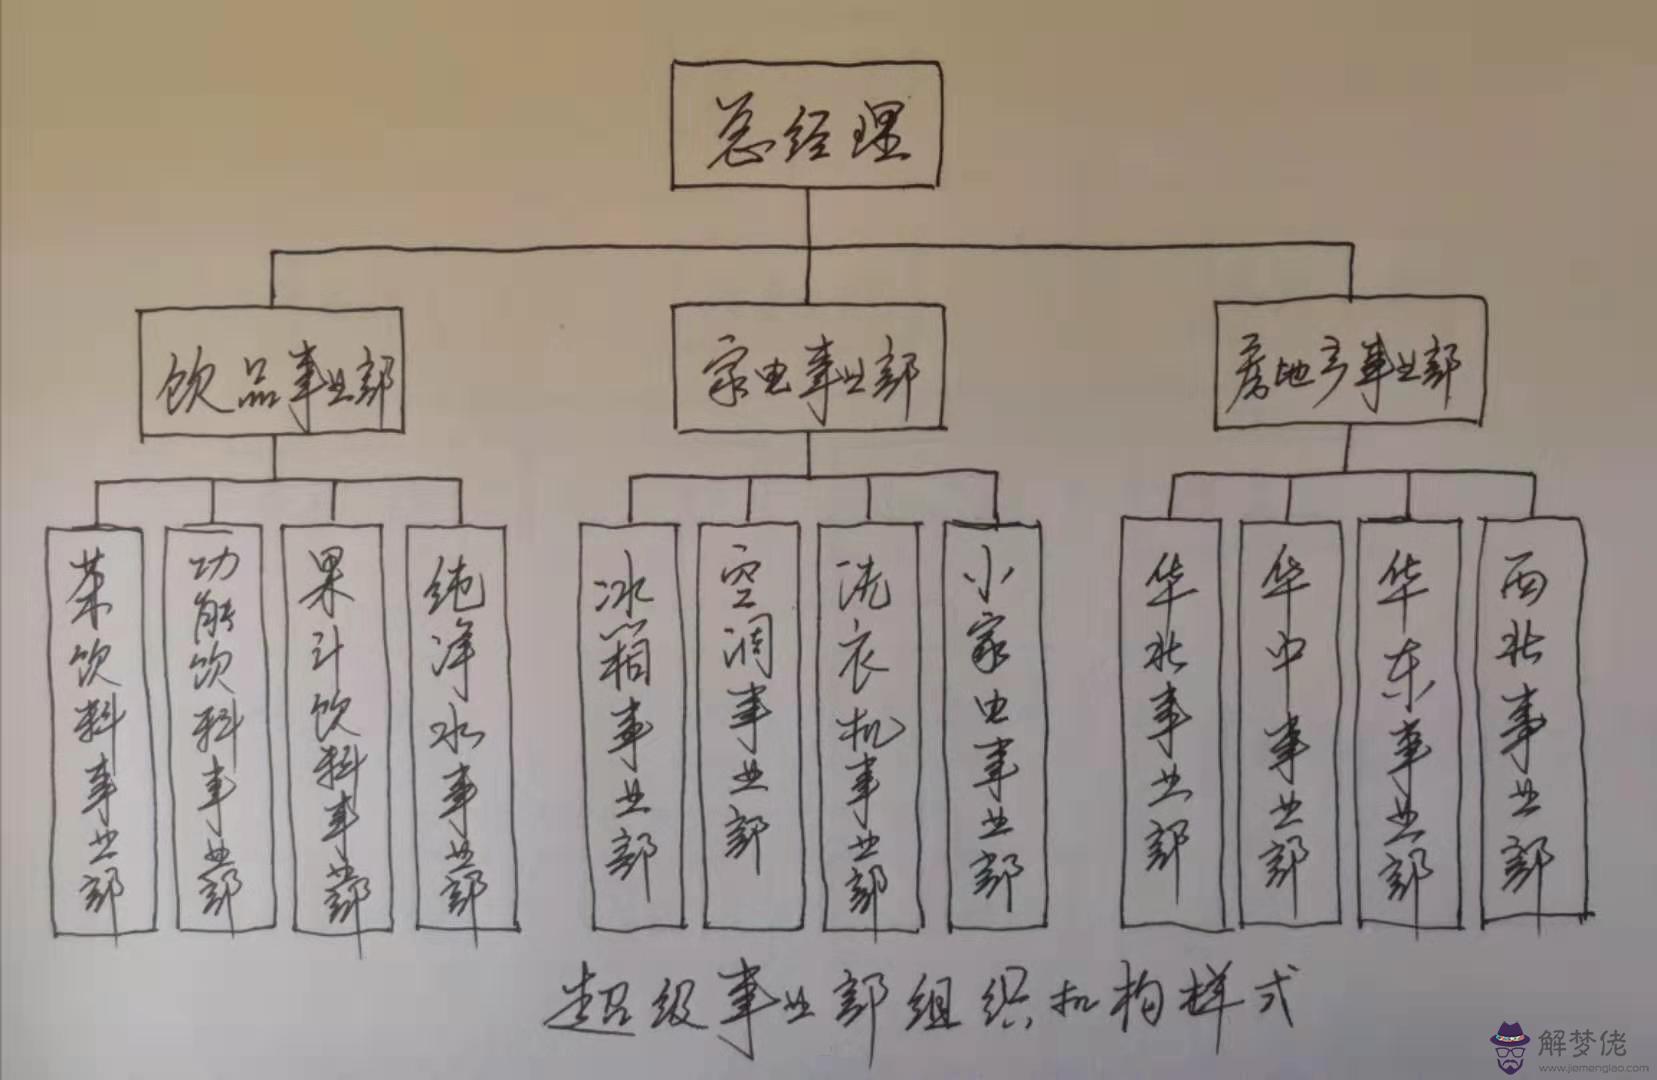 总经理
饮品事业部
家电事业部
房地产事业部
茶饮料事业部
功能饮料事业部
果汁饮料事业部
纯净水事业部
冰箱事业部
空调事业部
洗衣机事业部
小家电事业部
华北事业部
华中事业部
华东事业部
西北事业部
超级事业部组织机构样式
解梦佬
www.jiemenglao.com